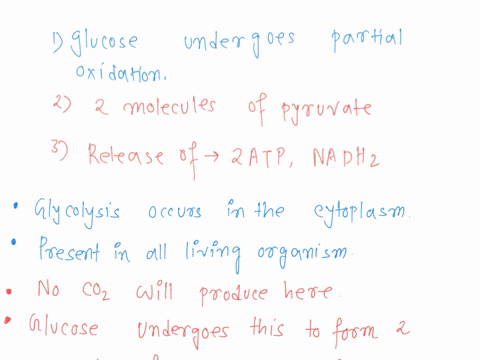 1) Glucose undergoes partial
oxidation.
2) 2 molecules of pyruvate
3) Release of → 2ATP, NADH2
• Glycolysis occurs in the cytoplasm.
• Present in all living organism.
• No CO2 will produce here.
• Glucose undergoes this to form 2